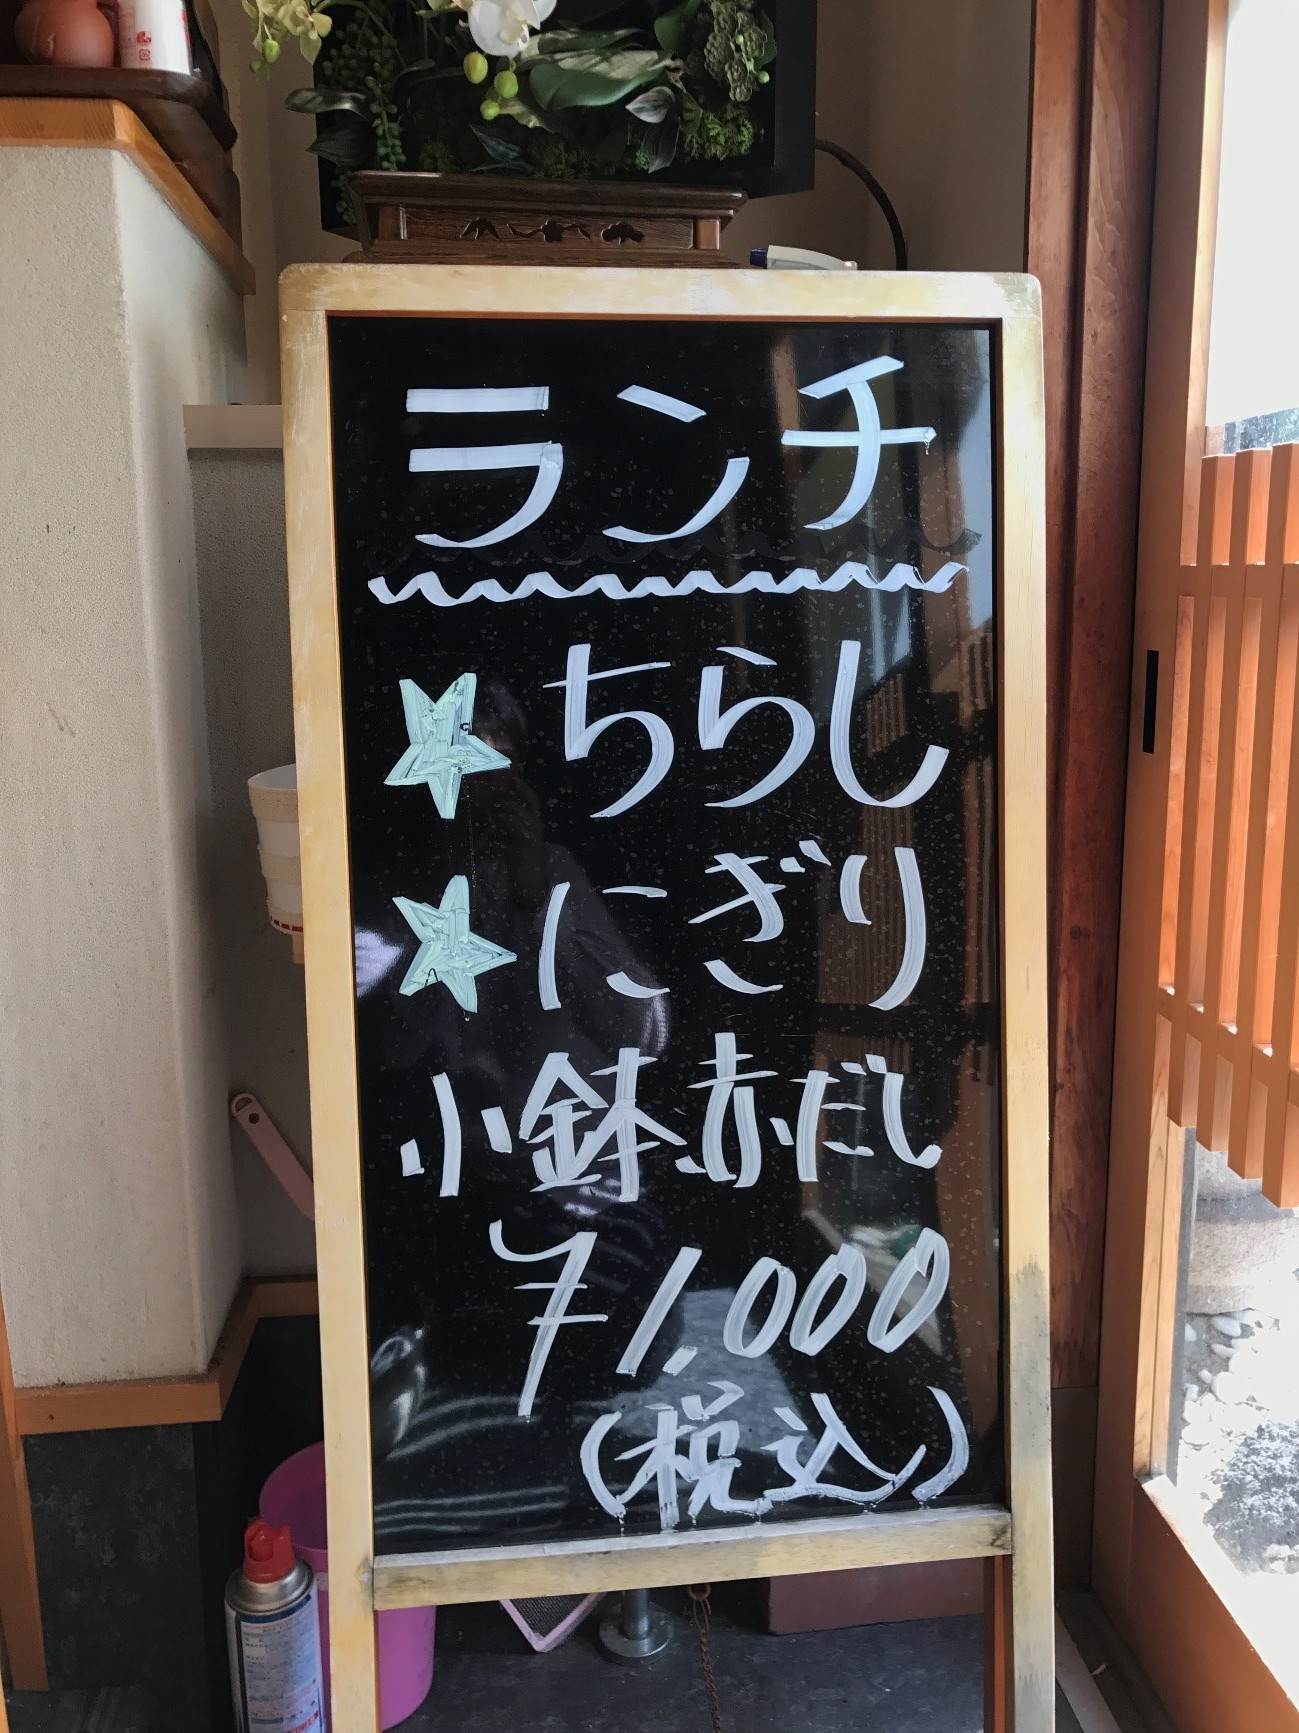 ランチ
★ ちらし
★ にぎり
小鉢 赤だし
¥1,000
(税込)